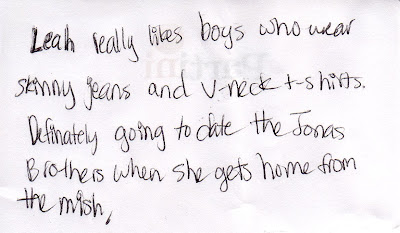 Leah really likes boys who wear
skinny jeans and v-neck t-shirts.
Definately going to date the Jonas
Brothers when she gets home from
the mish,